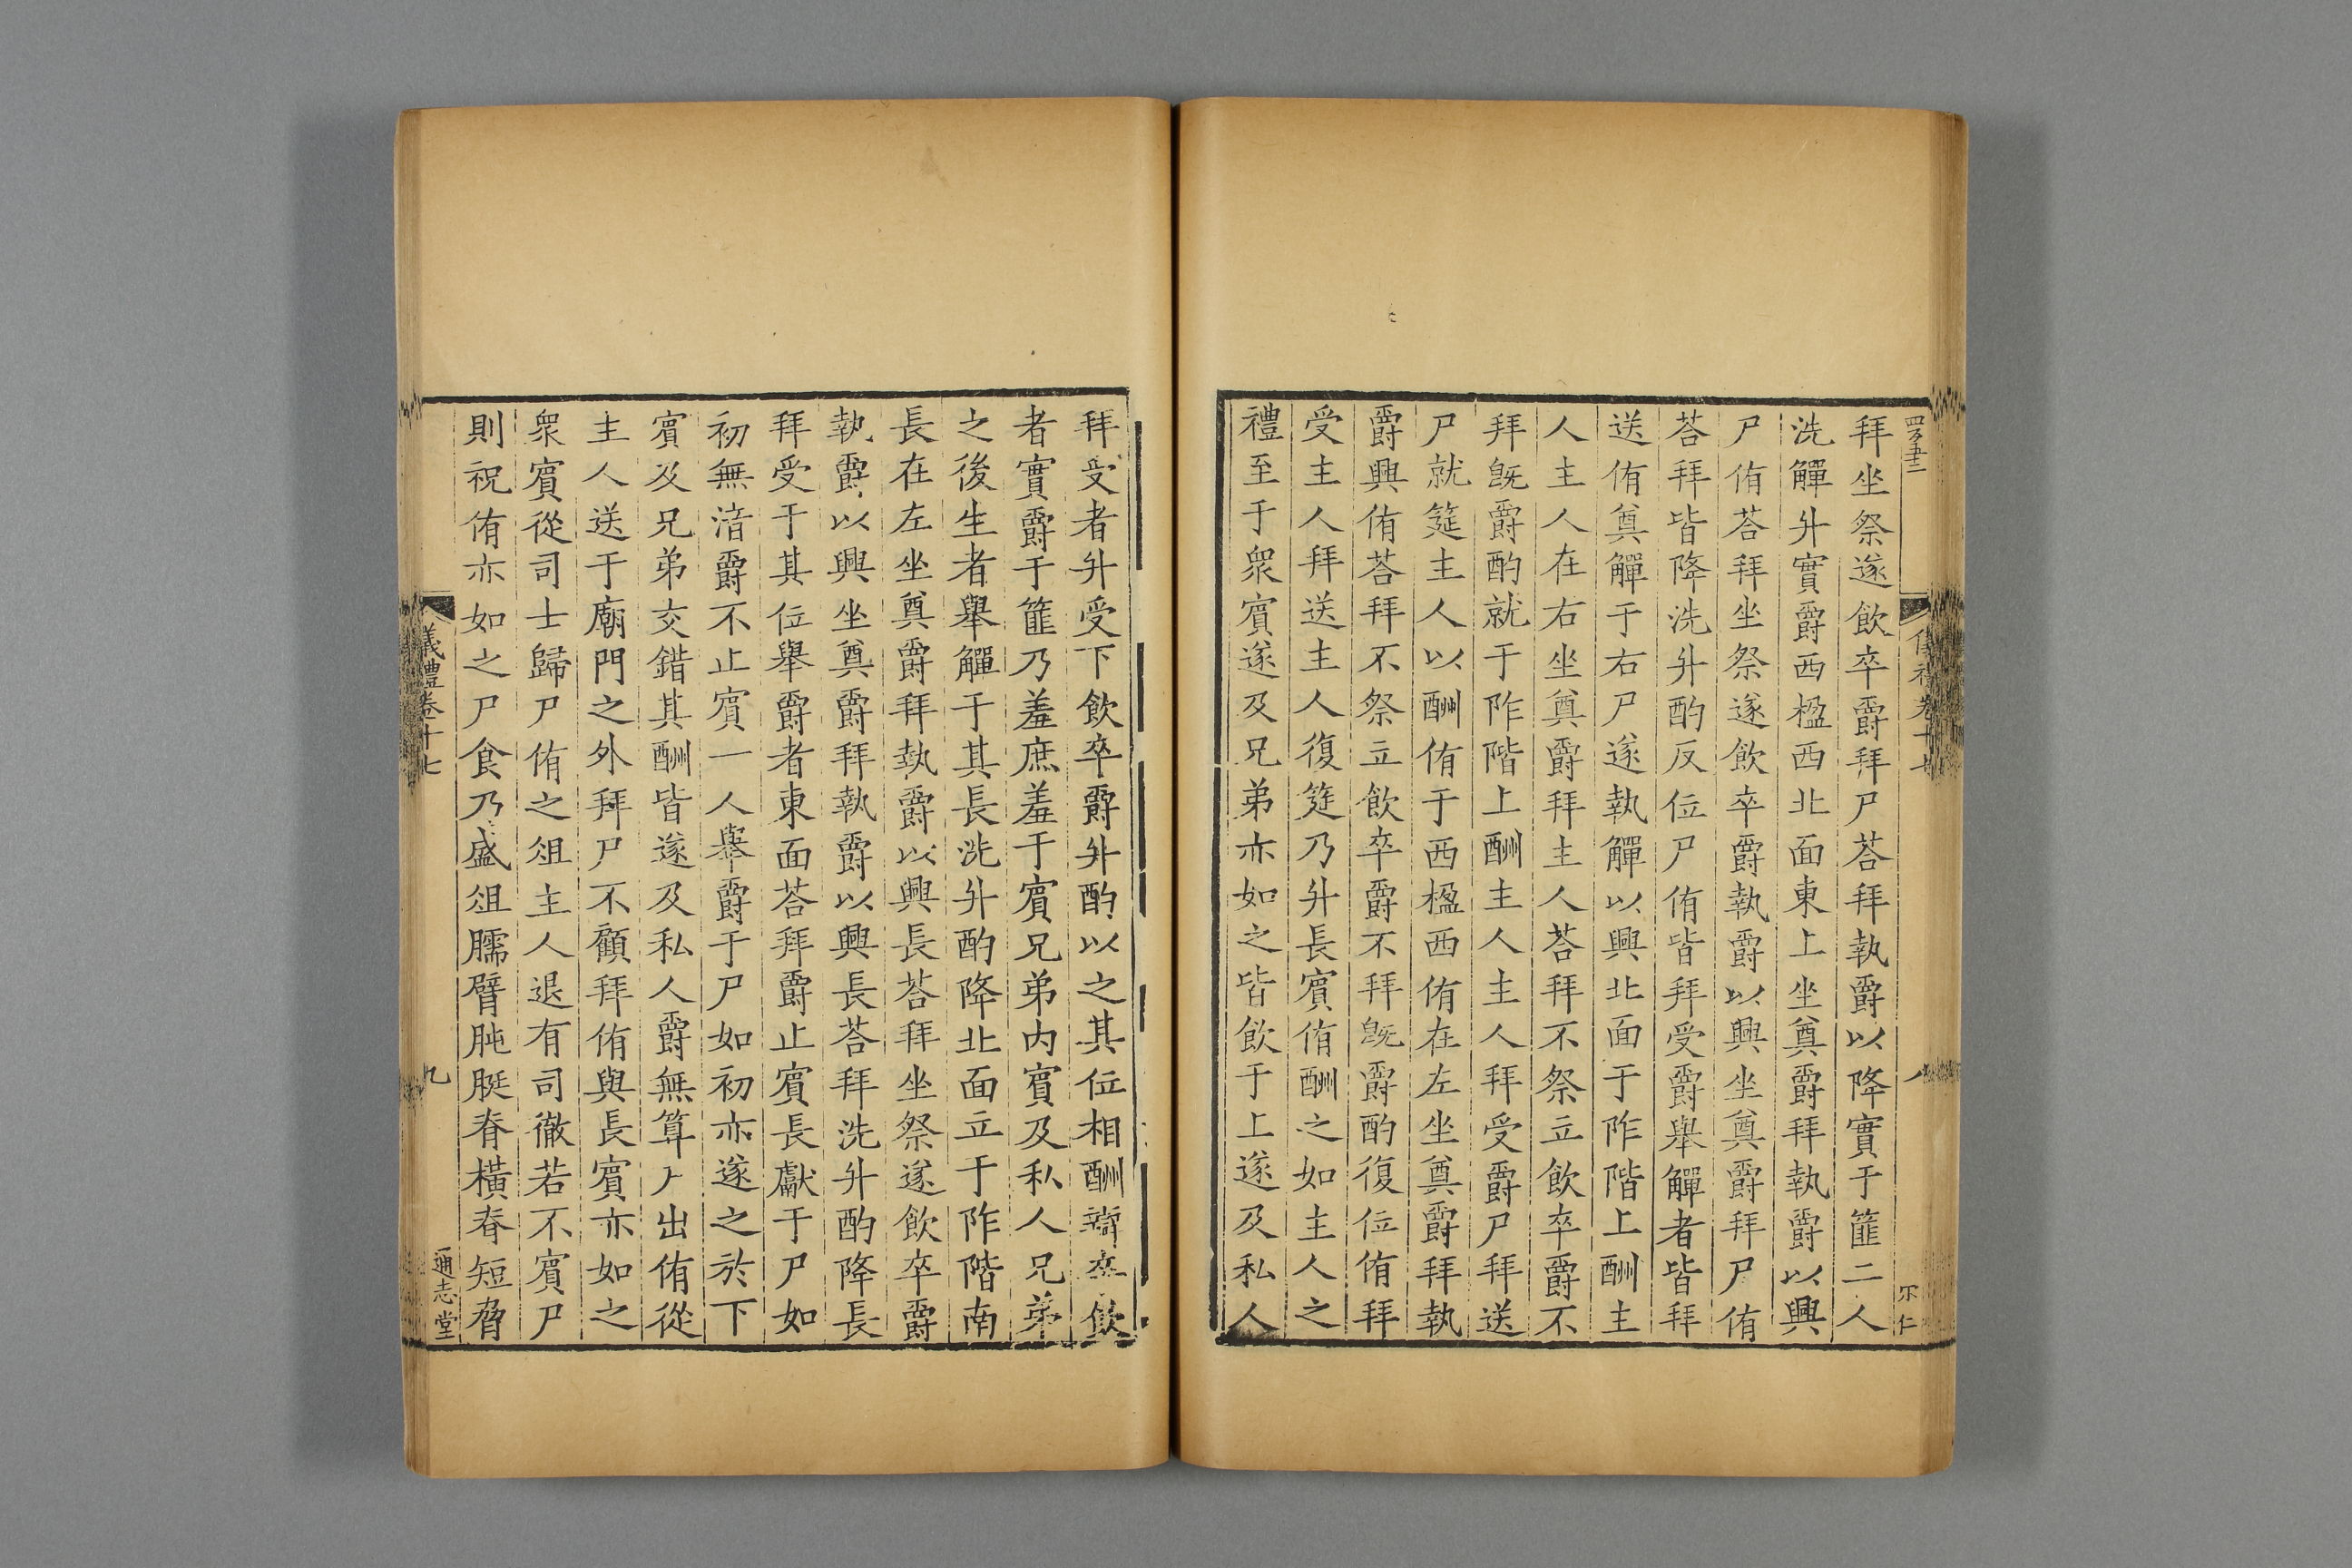 拜坐祭遂飲卒爵拜尸荅拜執爵以降實于篚二人
洗觶升實爵西楹西北面東上坐奠爵拜執爵以興
尸侑荅拜坐祭遂飲卒爵執爵以興坐奠爵拜尸侑
荅拜皆降洗升酌反位尸侑皆拜受爵舉觶者皆拜
送侑奠觶于右尸遂執觶以興北面于阼階上酬主
人主人在右坐奠爵拜主人荅拜不祭立飲卒爵不
拜旣爵酌就于阼階上酬主人主人拜受爵尸拜送
尸就筵主人以酬侑于西楹西侑在左坐奠爵拜執
爵興侑荅拜不祭立飲卒爵不拜旣爵酌復位侑拜
受主人拜送主人復筵乃升長賓侑酬之如主人之
禮至于衆賓遂及兄弟亦如之皆飲于上遂及私人
拜受者升受下飲卒爵升酌以之其位相酬辯卒飲
者實爵于篚乃羞庶羞于賓兄弟内賓及私人兄弟
之後生者舉觶于其長洗升酌降北面立于阼階南
長在左坐奠爵拜執爵以興長荅拜坐祭遂飲卒爵
執爵以興坐奠爵拜執爵以興長荅拜洗升酌降長
拜受于其位舉爵者東面荅拜爵止賓長獻于尸如
初無湆爵不止賓一人舉爵于尸如初亦遂之於下
賓及兄弟交錯其酬皆遂及私人爵無筭尸出侑從
主人送于廟門之外拜尸不顧拜侑與長賓亦如之
衆賓從司士歸尸侑之俎主人退有司徹若不賓尸
則祝侑亦如之尸食乃盛俎臑臂肫脡脊橫脊短脅
儀禮卷十七
九
通志堂